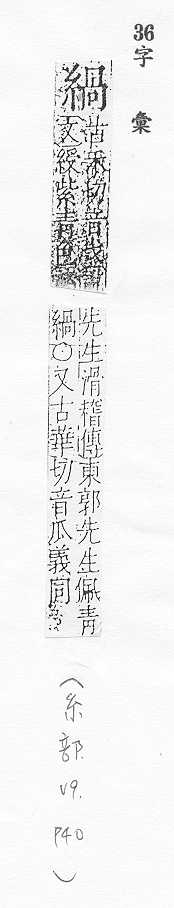 36 字 彙
緺
古禾切音戈
又綬紫青色
先生滑稽傳東郭先生佩青
緺○又古華切音瓜義同
(糸部 V9. P40)